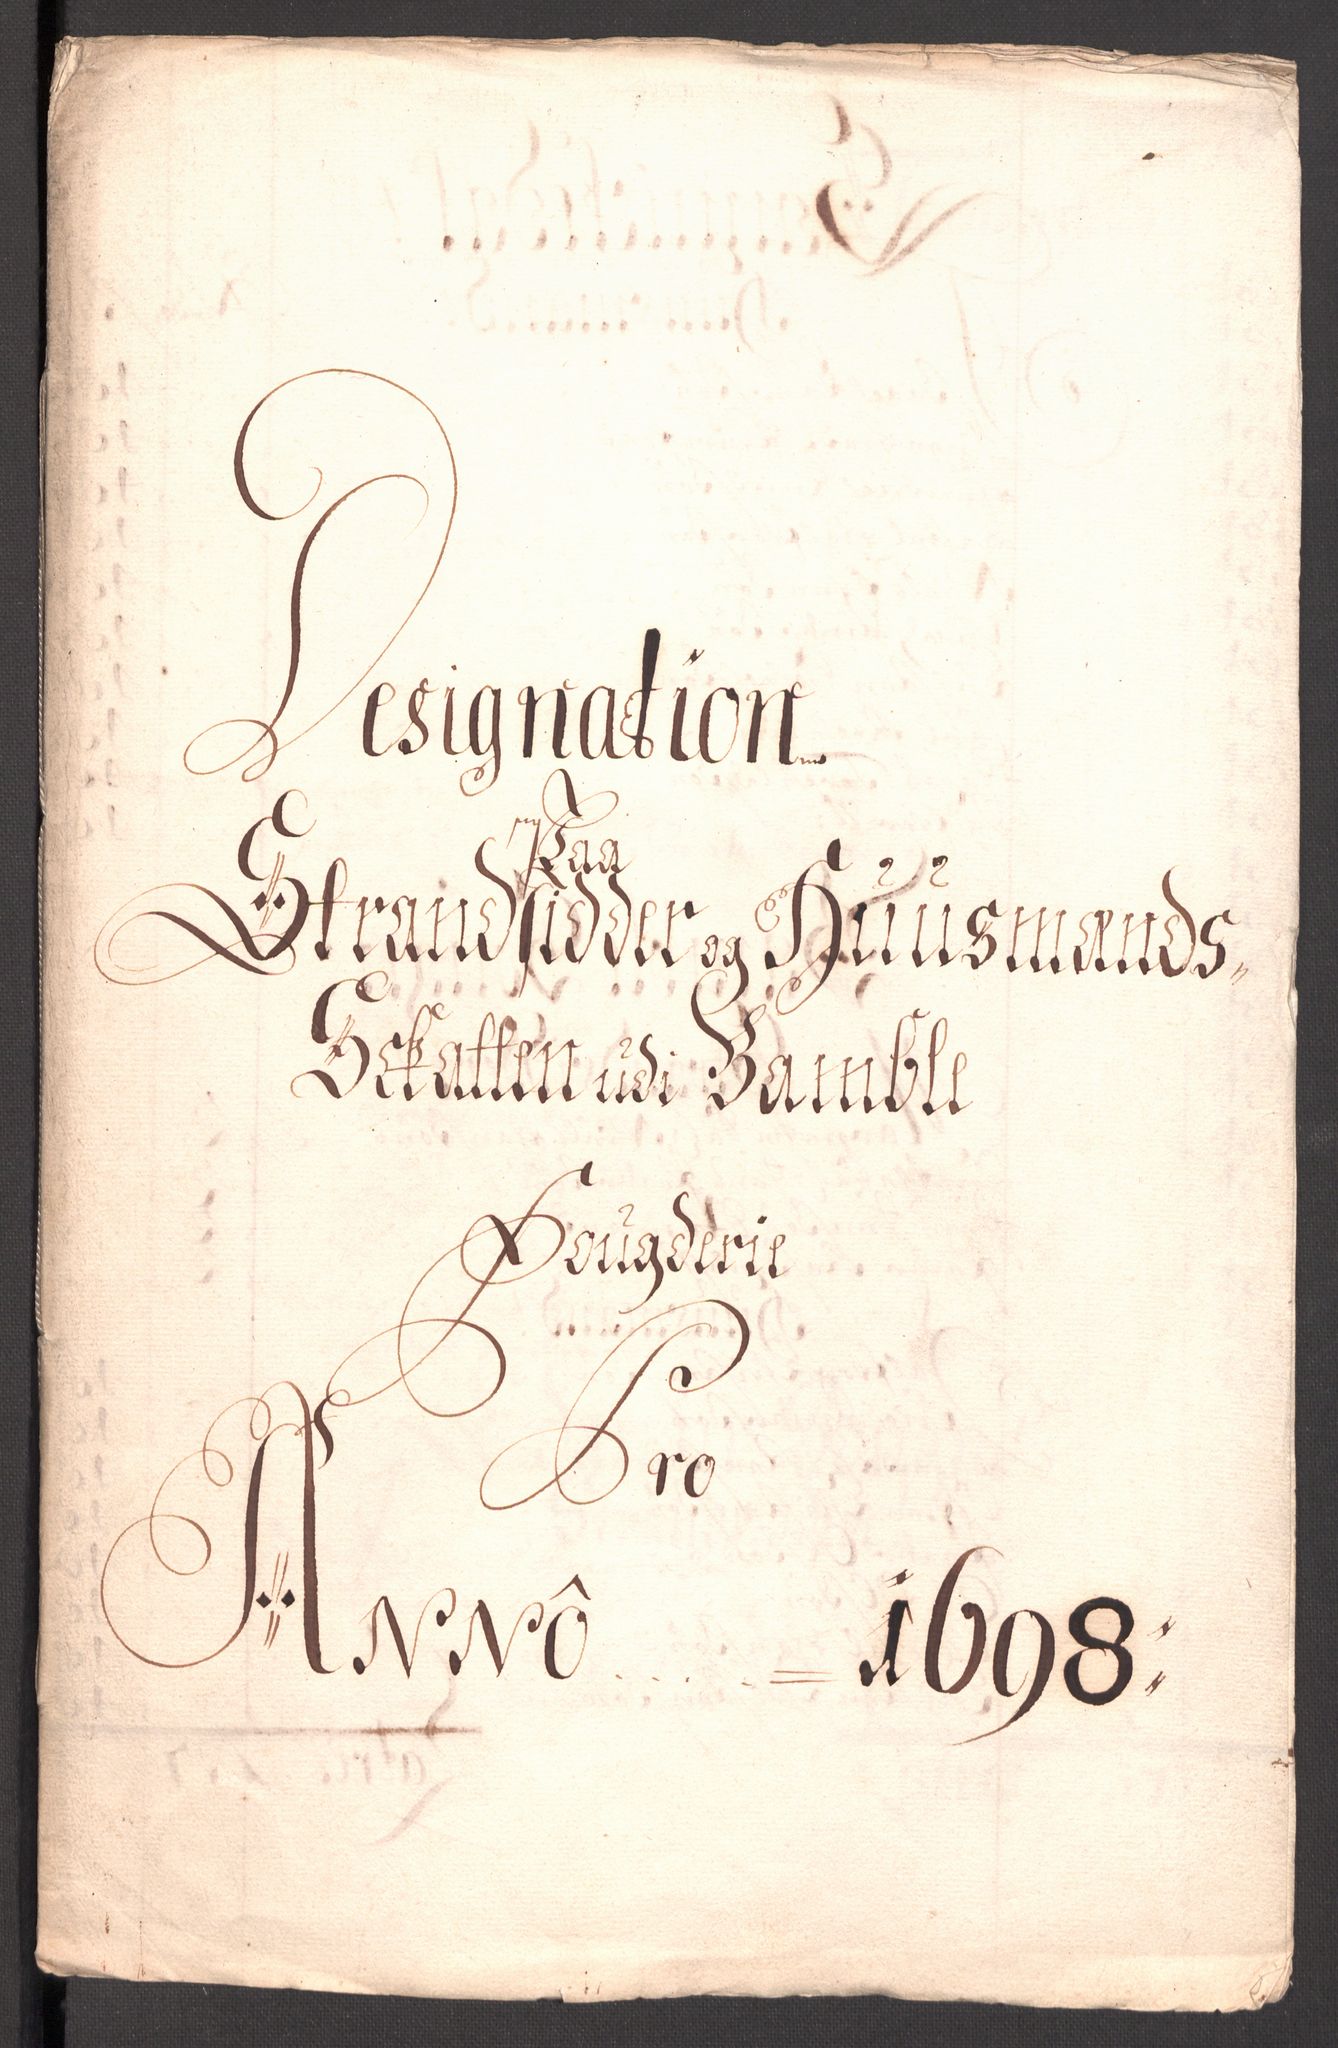 Designation
Paa
Strandsidder og Huusmands-
Schatten udi Bamble
Fougderie
Pro
Anno 1698: